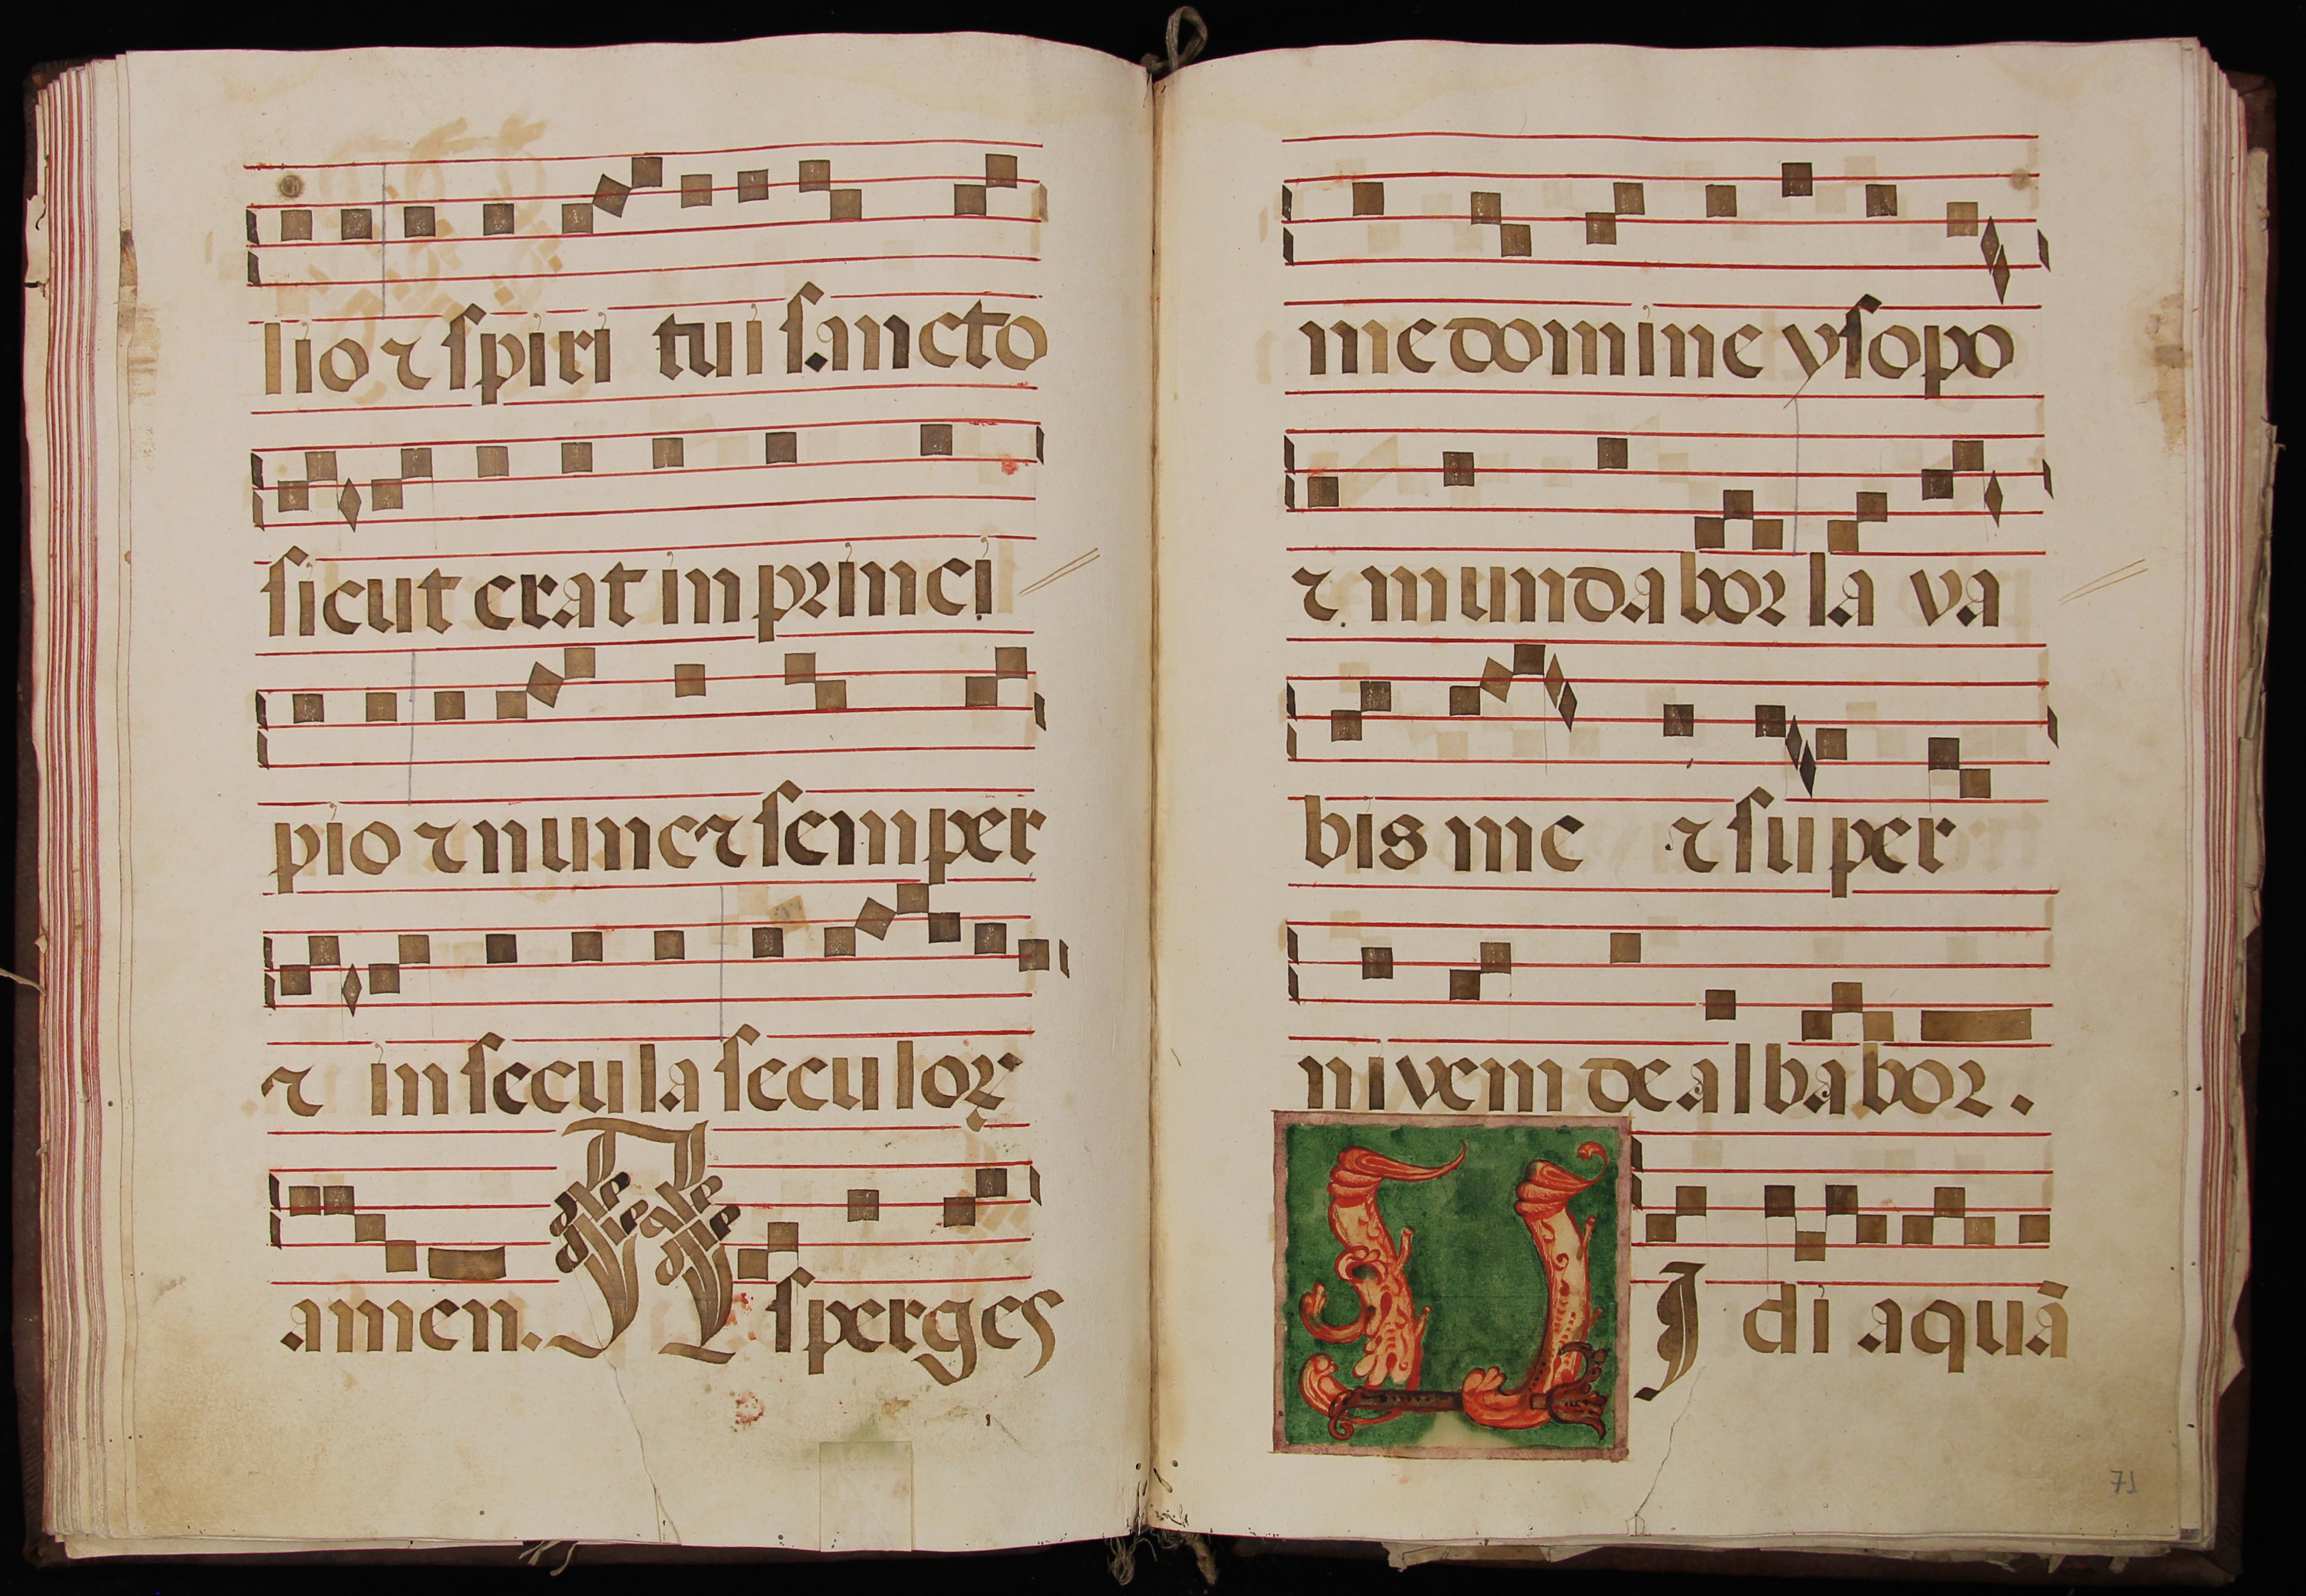 lio ⁊ spiri tui sancto
sicut erat in princi
pio ⁊ nunc ⁊ semper
⁊ in secula seculoꝝ
amen. Asperges
me domine ysopo
⁊ mundabor lava
bis me ⁊ super
nivem dealbabor.
VJdi aquā
71